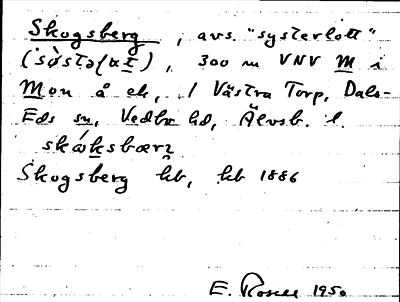 Skogsberg, avs. "systerlott"
, 300 m VNV M i
Mon å ek, 1 Västra Torp, Dals-
Eds sn, Vedbo hd, Älvsb. l.
skǻksbærʐ
Skogsberg hb, hb 1886
E. 1950